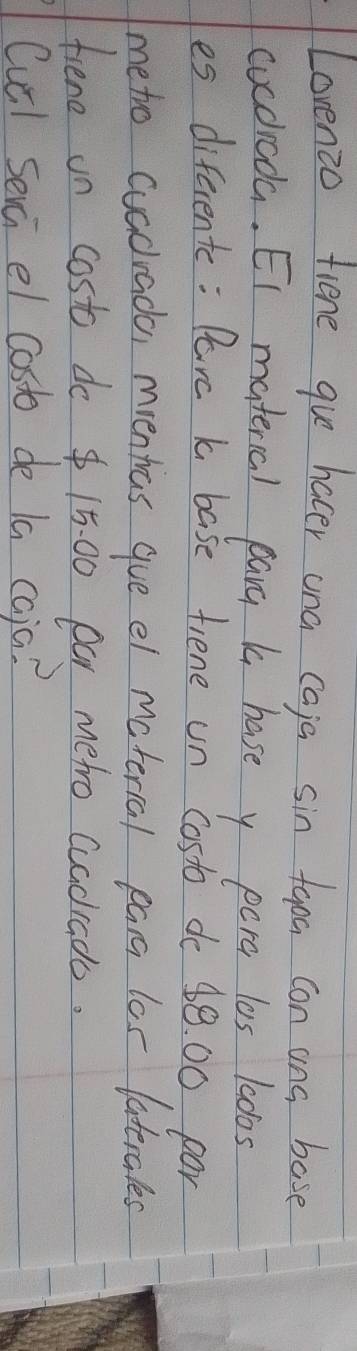 Lorenzo tiene que hacer una caja sin tapa con una base
cuadrada. El material para la base y para los lados
es diferente: Para la base tiene un costo de $8.00 por
metro cuadrado, mientras que el material para los laterales
tiene un costo de $15.00 por metro cuadrado.
Cuál será el costo de la caja?